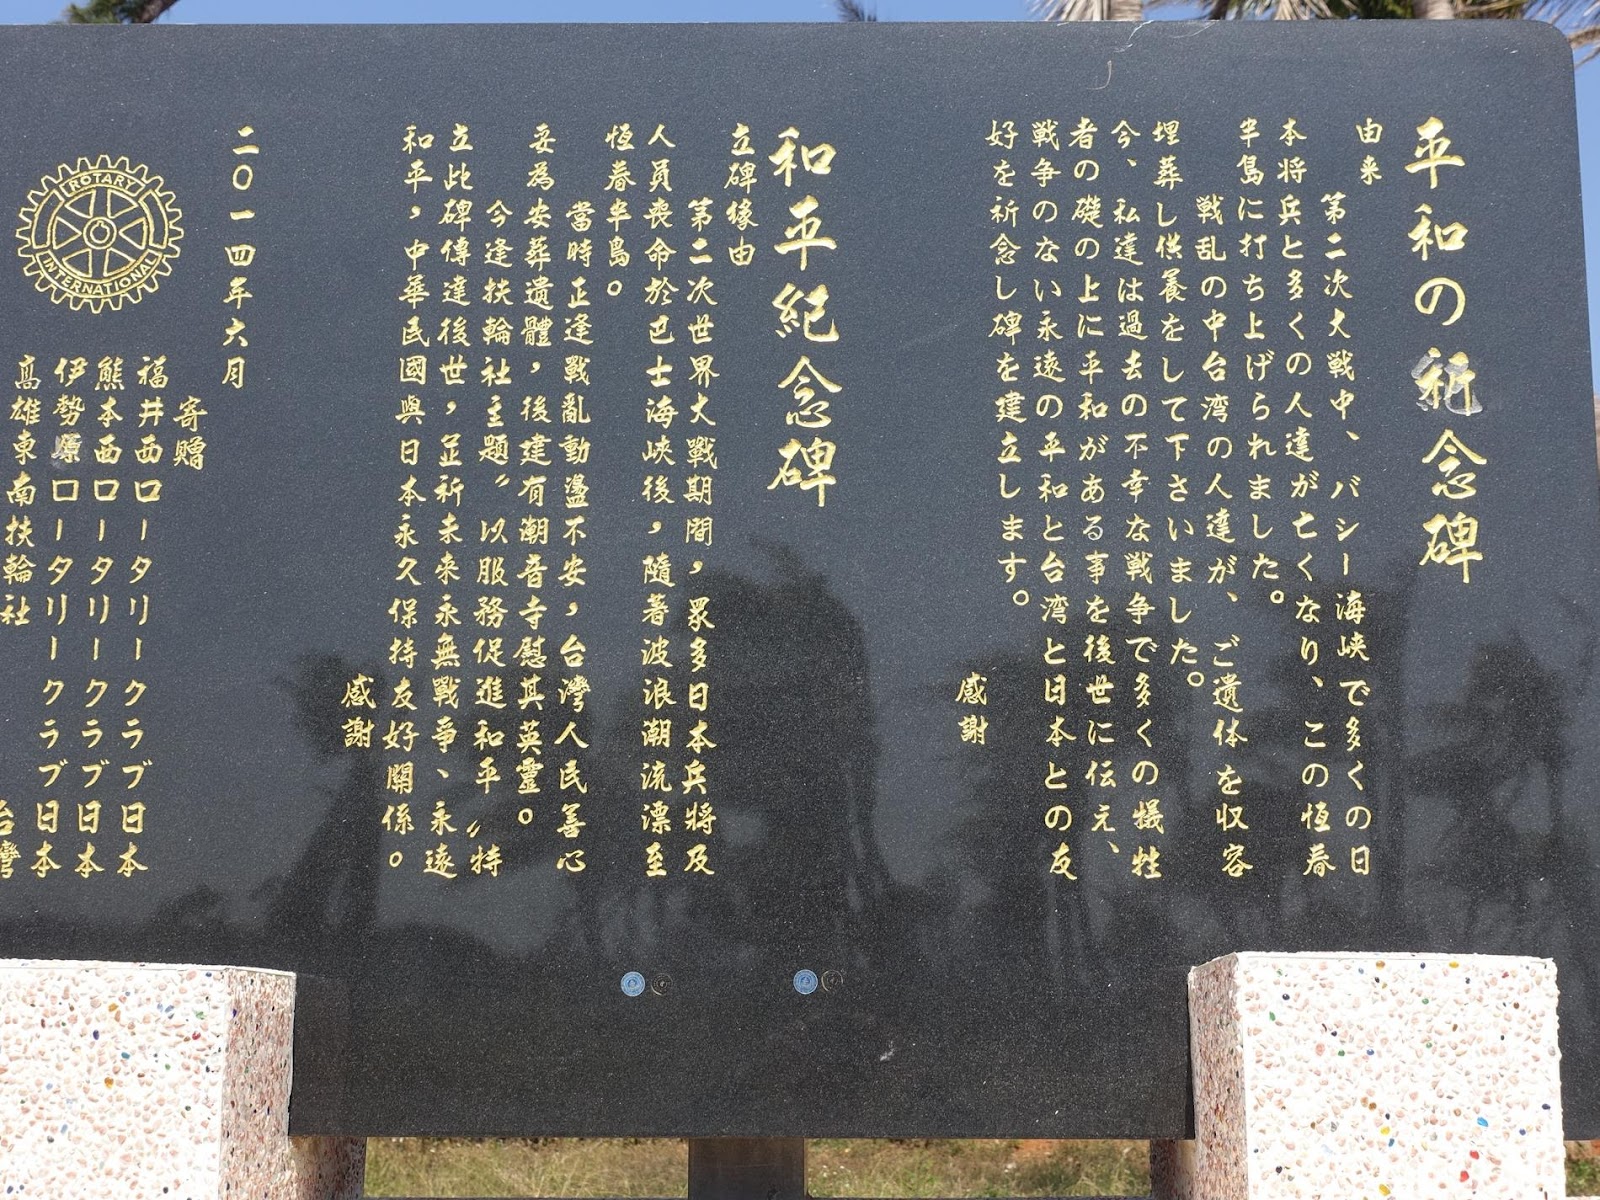 平和の祈念碑
由来
第二次大戦中、バシー海峡で多くの日
本将兵と多くの人達が亡くなり、この恆春
半島に打ち上げられました。
戦乱の中台湾の人達が、ご遺体を収容
埋葬し供養をして下さいました。
今、私達は過去の不幸な戦争で多くの犠牲
者の礎の上に平和がある事を後世に伝え、
戦争のない永遠の平和と台湾と日本との友
好を祈念し碑を建立します。
感謝
和平紀念碑
立碑緣由
第二次世界大戰期間，眾多日本兵將及
人員喪命於巴士海峽後，隨著波浪潮流漂至
恆春半島。
當時正逢戰亂動盪不安，台灣人民善心
妥為安葬遺體，後建有潮音寺慰其英靈。
今逢扶輪社主題〝以服務促進和平〞特
立此碑傳達後世，並祈未來永無戰爭、永遠
和平，中華民國與日本永久保持友好關係。
感謝
二〇一四年六月
寄贈
福井西ロータリークラブ日本
熊本西ロータリークラブ日本
伊勢原ロータリークラブ日本
高雄東南扶輪社 台灣
ROTARY
INTERNATIONAL